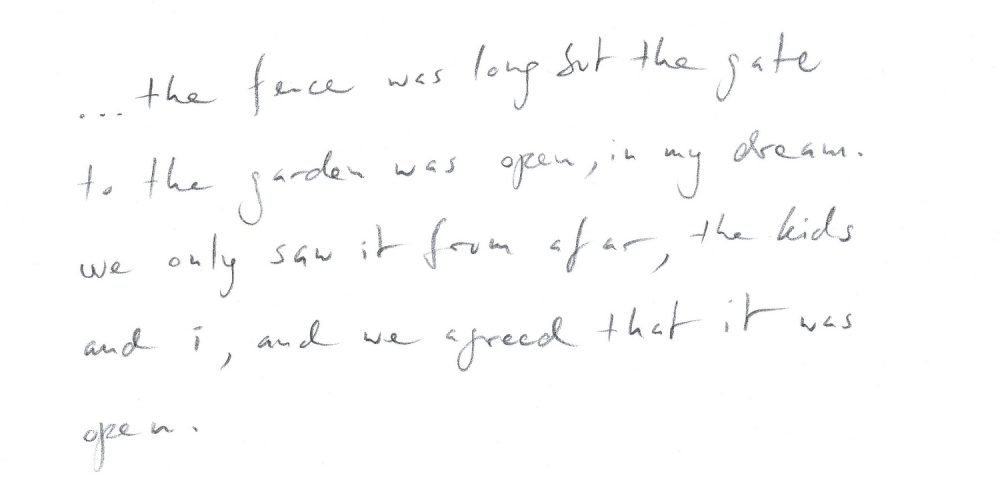 ... the fence was long but the gate
to the garden was open, in my dream.
we only saw it from afar, the kids
and i, and we agreed that it was
open.